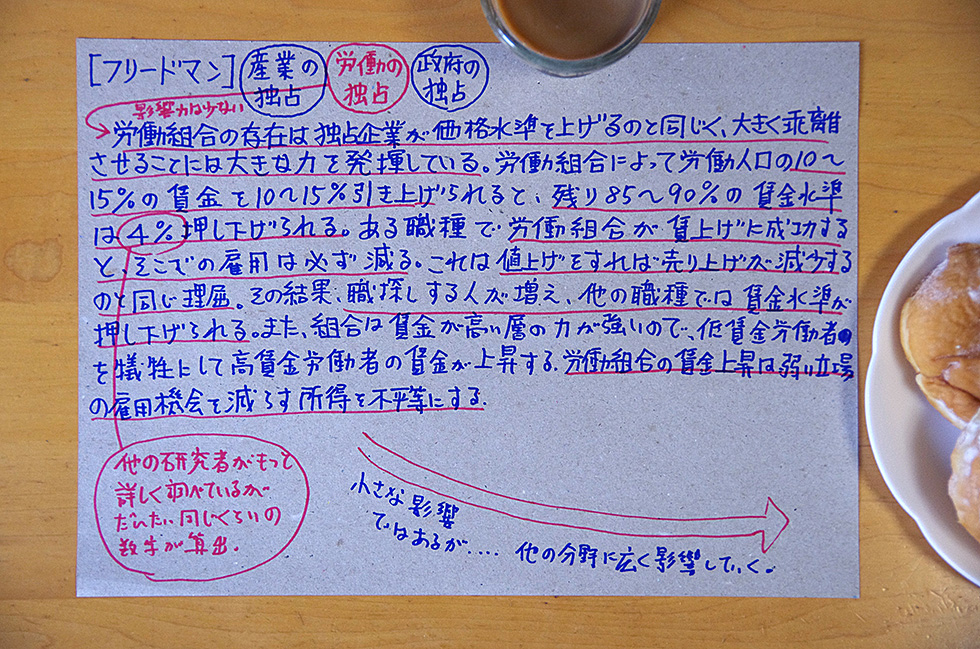 [フリードマン] 産業の独占 労働の独占 政府の独占
影響力は少ない
労働組合の存在は独占企業が価格水準を上げるのと同じく、大きく乖離
させることには大きな力を発揮している。労働組合によって労働人口の10〜
15%の賃金を10〜15%引き上げられると、残り85〜90%の賃金水準
は4%押し下げられる。ある職種で労働組合が賃上げに成功する
と、そこでの雇用は必ず減る。これは値上げをすれば売り上げが減少する
のと同じ理屈。その結果、職探しする人が増え、他の職種では賃金水準が
押し下げられる。また、組合は賃金が高い層の力が強いので、低賃金労働者
を犠牲にして高賃金労働者の賃金が上昇する.労働組合の賃金上昇は弱い立場
の雇用機会を減らす所得を不平等にする.
他の研究者がもって
詳しく調べているが
だいたい同じくらいの
数字が算出.
小さな影響
ではあるが....
他の分野に広く影響していく。